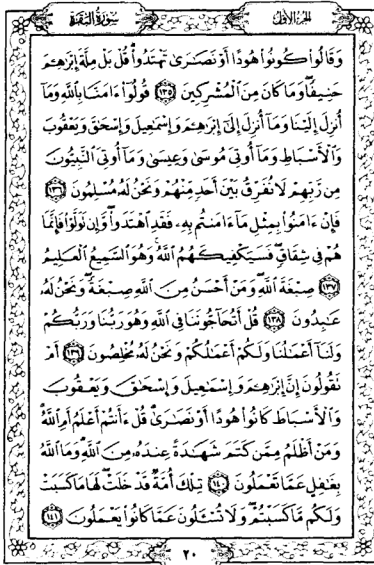 سُورَةُ البَقَرَةِ
الجزء الأول
وَقَالُوا۟ كُونُوا۟ هُودًا أَوْ نَصَـٰرَىٰ تَهْتَدُوا۟ قُلْ بَلْ مِلَّةَ إِبْرَٰهِـۧمَ
حَنِيفًا وَمَا كَانَ مِنَ الْمُشْرِكِينَ ١٣٥ قُولُوٓا۟ ءَامَنَّا بِاللَّهِ وَمَآ
أُنزِلَ إِلَيْنَا وَمَآ أُنزِلَ إِلَىٰٓ إِبْرَٰهِـۧمَ وَإِسْمَـٰعِيلَ وَإِسْحَـٰقَ وَيَعْقُوبَ
وَالْأَسْبَاطِ وَمَآ أُوتِىَ مُوسَىٰ وَعِيسَىٰ وَمَآ أُوتِىَ النَّبِيُّونَ
مِن رَّبِّهِمْ لَا نُفَرِّقُ بَيْنَ أَحَدٍ مِّنْهُمْ وَنَحْنُ لَهُۥ مُسْلِمُونَ ١٣٦
فَإِنْ ءَامَنُوا۟ بِمِثْلِ مَآ ءَامَنتُم بِهِۦ فَقَدِ اهْتَدَوا۟ وَّإِن تَوَلَّوْا۟ فَإِنَّمَا
هُمْ فِى شِقَاقٍ فَسَيَكْفِيكَهُمُ اللَّهُ وَهُوَ السَّمِيعُ الْعَلِيمُ
١٣٧ صِبْغَةَ اللَّهِ وَمَنْ أَحْسَنُ مِنَ اللَّهِ صِبْغَةً وَنَحْنُ لَهُۥ
عَـٰبِدُونَ ١٣٨ قُلْ أَتُحَآجُّونَنَا فِى اللَّهِ وَهُوَ رَبُّنَا وَرَبُّكُمْ
وَلَنَآ أَعْمَـٰلُنَا وَلَكُمْ أَعْمَـٰلُكُمْ وَنَحْنُ لَهُۥ مُخْلِصُونَ ١٣٩ أَمْ
تَقُولُونَ إِنَّ إِبْرَٰهِـۧمَ وَإِسْمَـٰعِيلَ وَإِسْحَـٰقَ وَيَعْقُوبَ
وَالْأَسْبَاطَ كَانُوا۟ هُودًا أَوْ نَصَـٰرَىٰ قُلْ ءَأَنتُمْ أَعْلَمُ أَمِ اللَّهُ
وَمَنْ أَظْلَمُ مِمَّن كَتَمَ شَهَـٰدَةً عِندَهُۥ مِنَ اللَّهِ وَمَا اللَّهُ
بِغَـٰفِلٍ عَمَّا تَعْمَلُونَ ١٤٠ تِلْكَ أُمَّةٌ قَدْ خَلَتْ لَهَا مَا كَسَبَتْ
وَلَكُم مَّا كَسَبْتُمْ وَلَا تُسْـَٔلُونَ عَمَّا كَانُوا۟ يَعْمَلُونَ ١٤١
٢٠